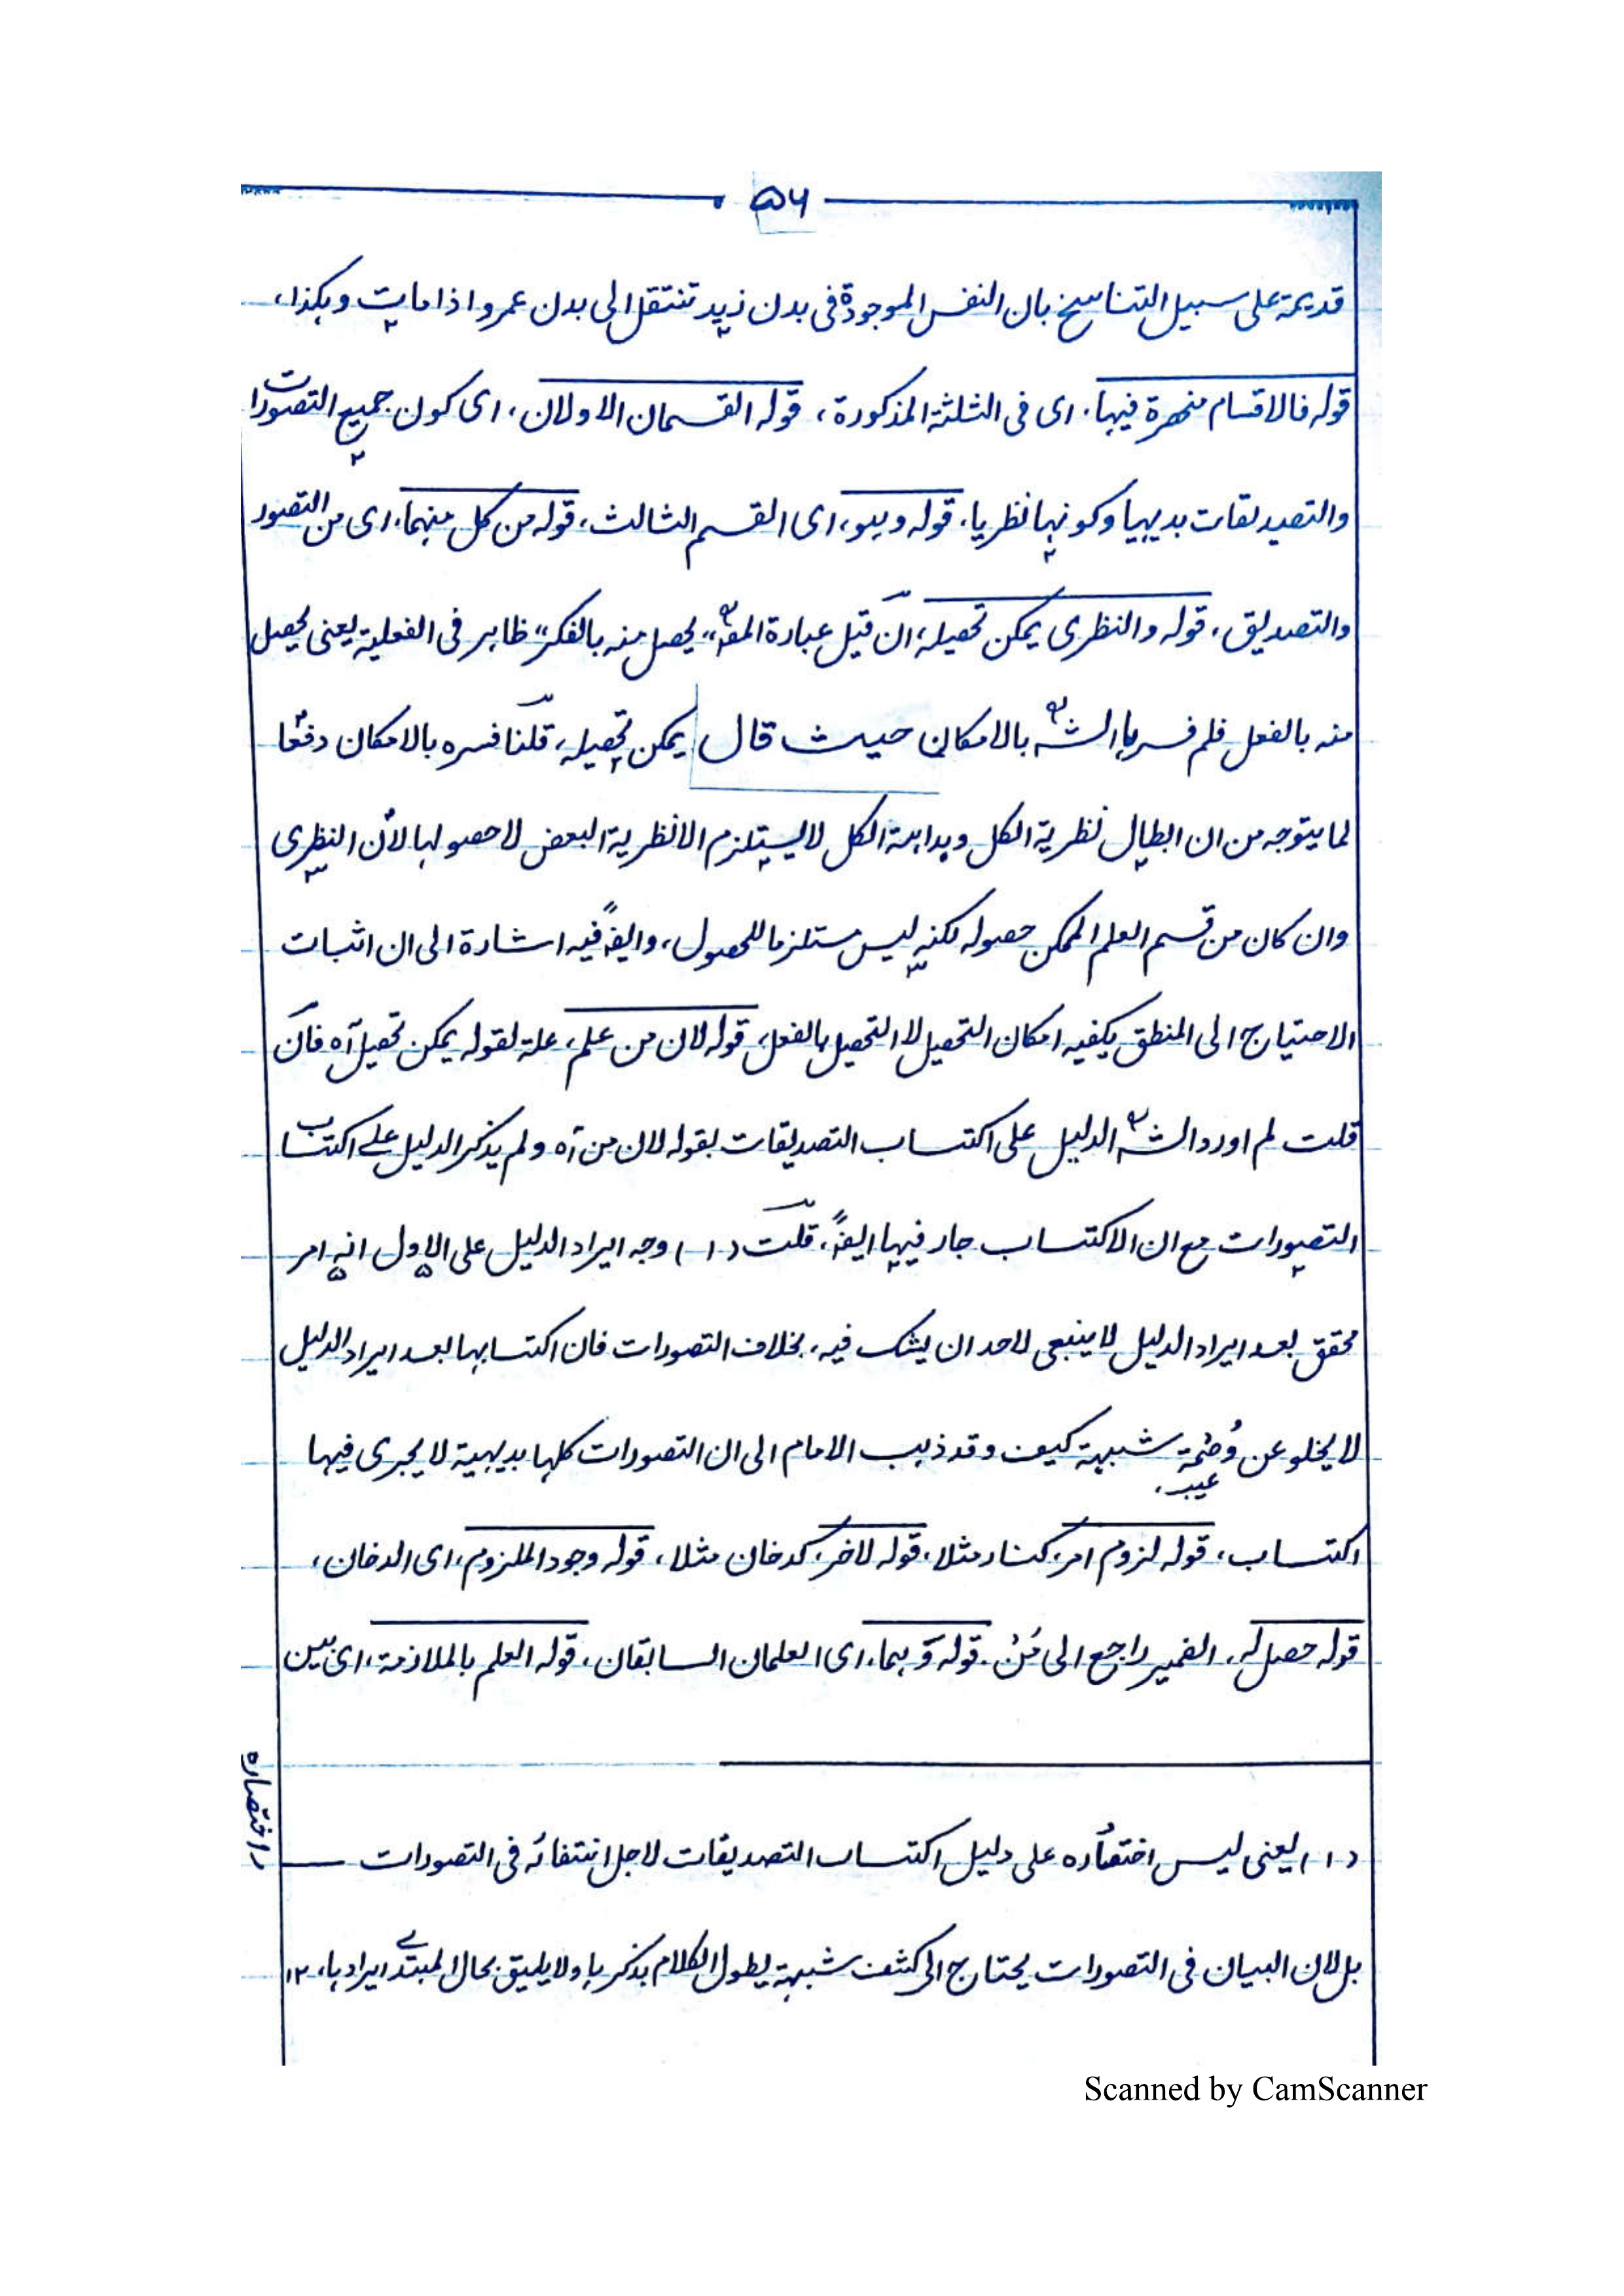 ۵۶
قدیمة علی سبیل التناسخ بان النفس الموجودة فی بدن زید تنتقل الی بدن عمرو اذا مات وہکذا،
قوله فالاقسام منحصرة فیہا، ای فی الثلثة المذکورة، قوله القسمان الاولان، ای کون جمیع التصورات
والتصدیقات بدیہیا وکونہا نظریا، قوله وہو، ای القسم الثالث، قوله من کل منہما، ای من التصور
والتصدیق، قوله والنظری یمکن تحصیلہ، ان قیل عبارة المصؒ "یحصل منه بالفکر" ظاہر فی الفعلیة یعنی یحصل
منه بالفعل فلم فسرہا الشؒ بالامکان حیث قال یمکن تحصیلہ، قلنا فسره بالامکان دفعًا
لما یتوجه من ان ابطال نظریة الکل وبداہة الکل لا یستلزم الا نظریة البعض لا حصولہا لأن النظری
وان کان من قسم العلم الممکن حصولہ لکنہ لیس مستلزما للحصول، وایضًا فیه اشارة الی ان اثبات
الاحتیاج الی المنطق یکفیه امکان التحصیل لا التحصیل بالفعل، قوله لان من علم، علة لقوله یمکن تحصیل آہ فان
قلت لم اورد الشؒ الدلیل علی اکتساب التصدیقات بقوله لان من آہ ولم یذکر الدلیل علے اکتساب
التصورات مع ان الاکتساب جار فیہا ایضًا، قلت (۱) وجه ایراد الدلیل علی الاول انه امر
محقق بعد ایراد الدلیل لا ینبغی لاحد ان یشک فیه، بخلاف التصورات فان اکتسابہا بعد ایراد الدلیل
لا یخلو عن وُصْمة شبہة کیف وقد ذہب الامام الی ان التصورات کلہا بدیہیة لا یجری فیہا
عیب،
اکتساب، قوله لزوم امر، کنار مثلا، قوله لآخر، کدخان مثلا، قوله وجود الملزوم، ای الدخان،
قوله حصل لہ، الضمیر راجع الی مَنْ، قوله وہما، ای العلمان السابقان، قوله العلم بالملازمة، ای بین
(۱) یعنی لیس اختصارہ علی دلیل اکتساب التصدیقات لاجل انتفائہ فی التصورات
بل لان البیان فی التصورات یحتاج الی کشف شبہة یطول الکلام بذکرہا ولا یلیق بحال المبتدی ایرادہا، ۱۲
اختصاره
Scanned by CamScanner